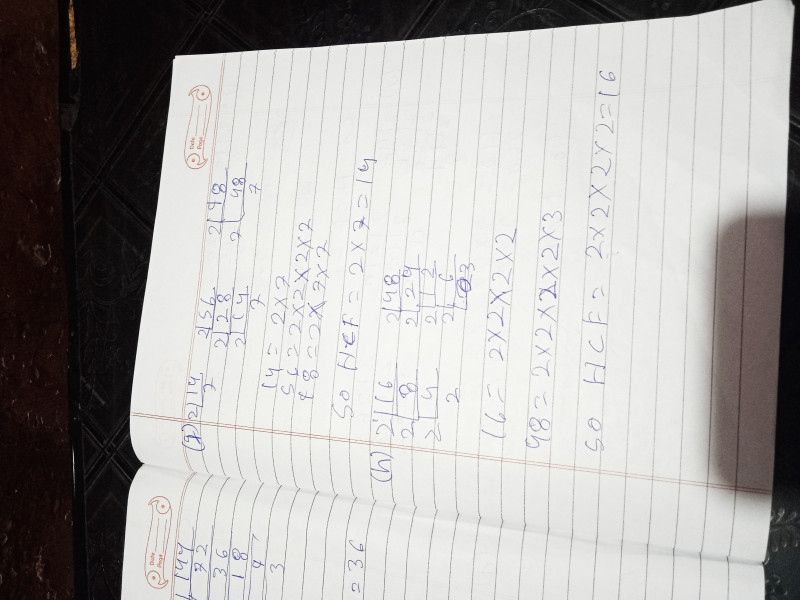 Date
Page
(g) 2|14 2|56 2|98
7 2|28 7|48
2|14 7
7
14 = 2×7
56 = 2×2×2×7
98 = 2×7×7
SO HCF = 2×7=14
(h) 2|16 2|48
2|8 2|24
2|4 2|12
2 2|6
3
16 = 2×2×2×2
48 = 2×2×2×2×3
SO HCF = 2×2×2×2=16
Date
Page
144
72
36
18
9
3
= 36